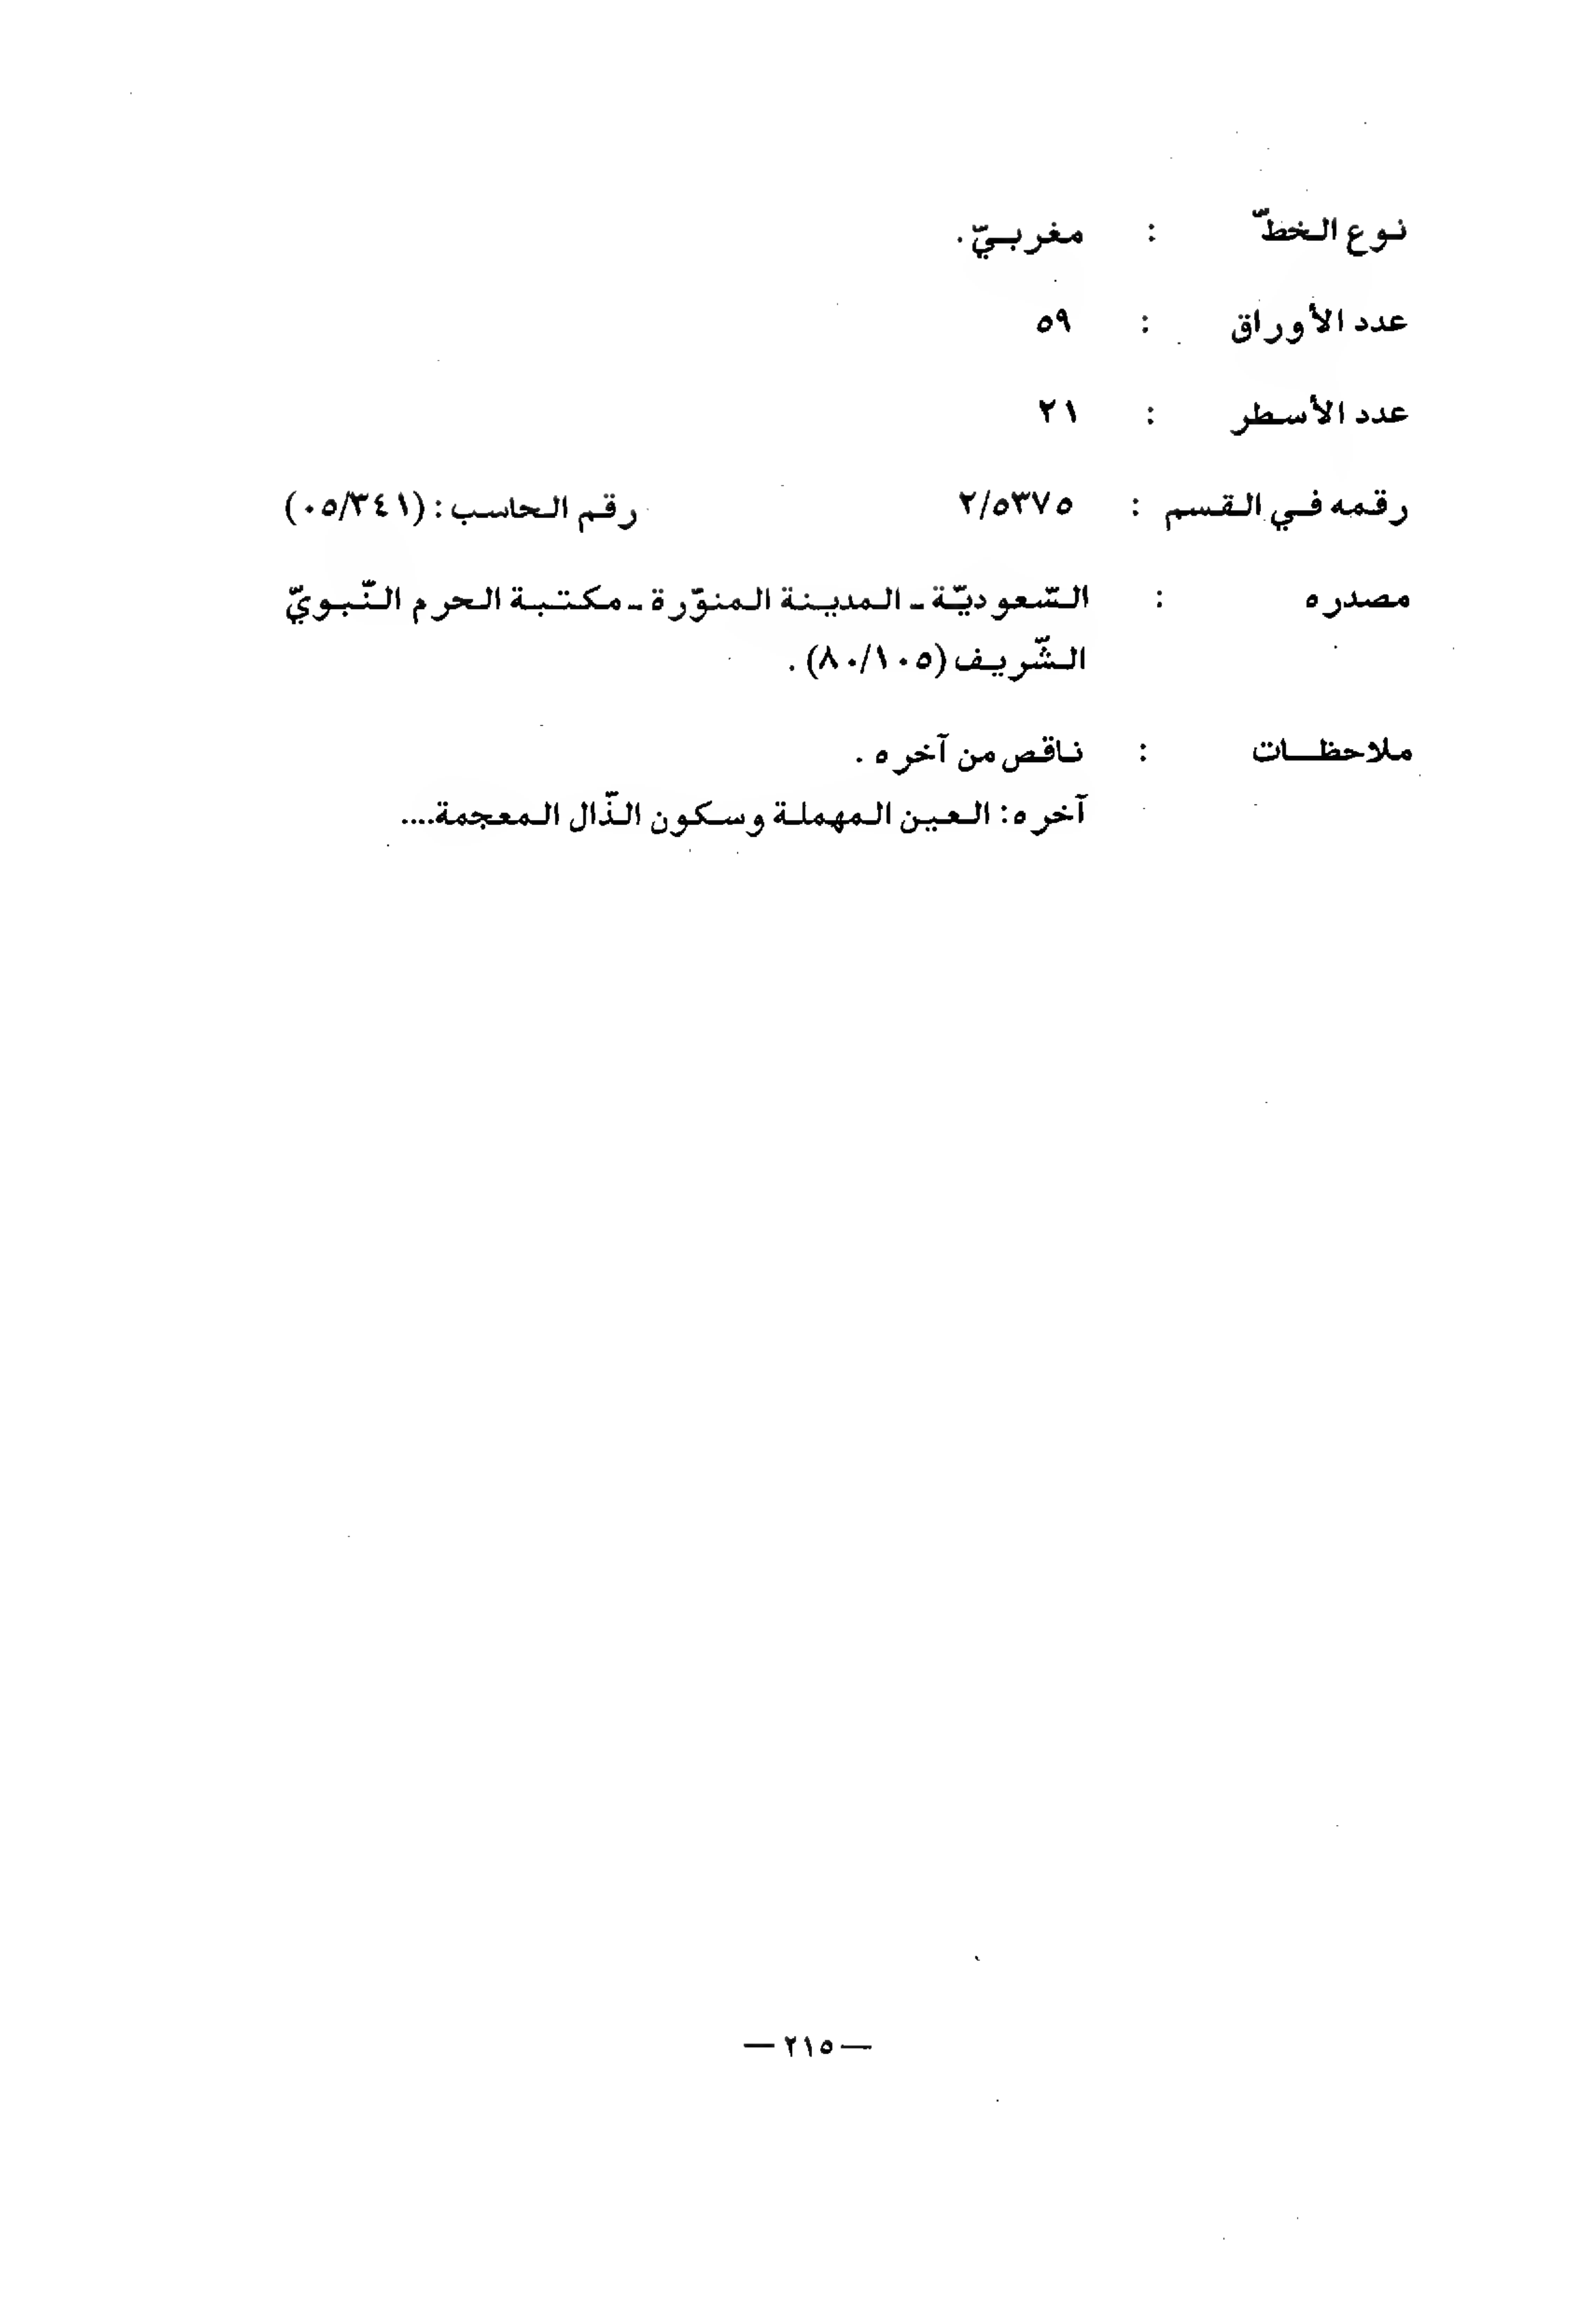 نوع الخطّ : مغربيّ.
عدد الأوراق : ٥٩
عدد الأسطر : ٢١
رقمه في القسم : ٢/٥٣٧٥ رقم الحاسب: (٠٥/٣٤١)
مصدره : السّعوديّة ـ المدينة المنوّرة ـ مكتبة الحرم النّبويّ
الشّريف (٨٠/١٠٥).
ملاحظات : ناقص من آخره.
آخره: العين المهملة وسكون الذّال المعجمة....
— ٢١٥ —